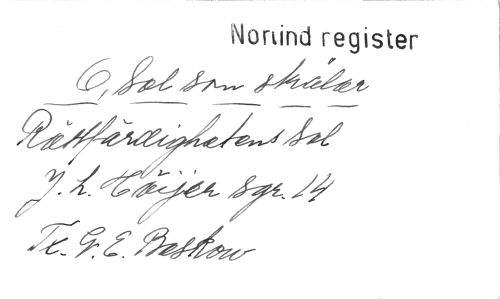 Norlind register
O, Sol som strålar
Rättfärdighetens Sol
J. L. Höijer sgr. 14
Tx. G. E. Beskow